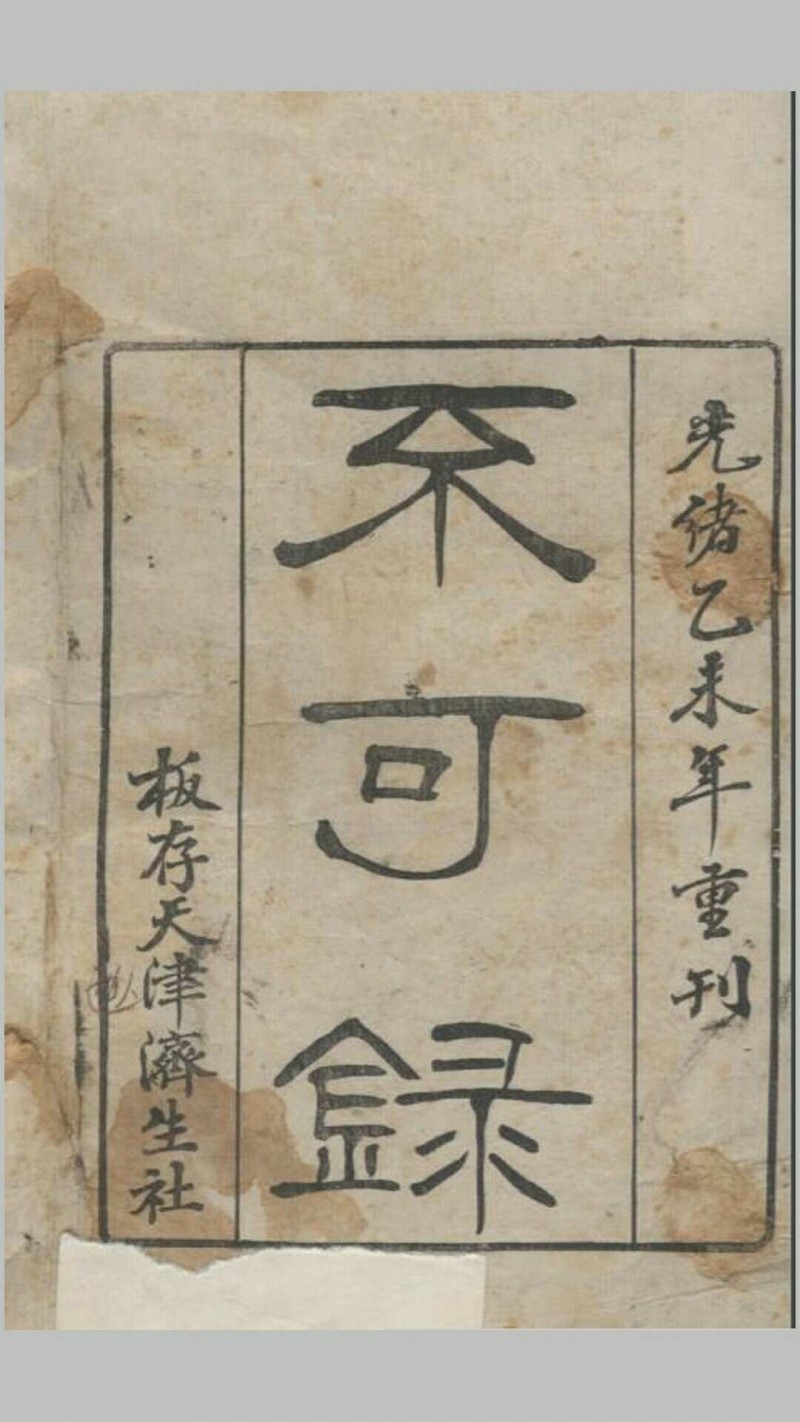 光緒乙未年重刊
不可録
板存天津濟生社